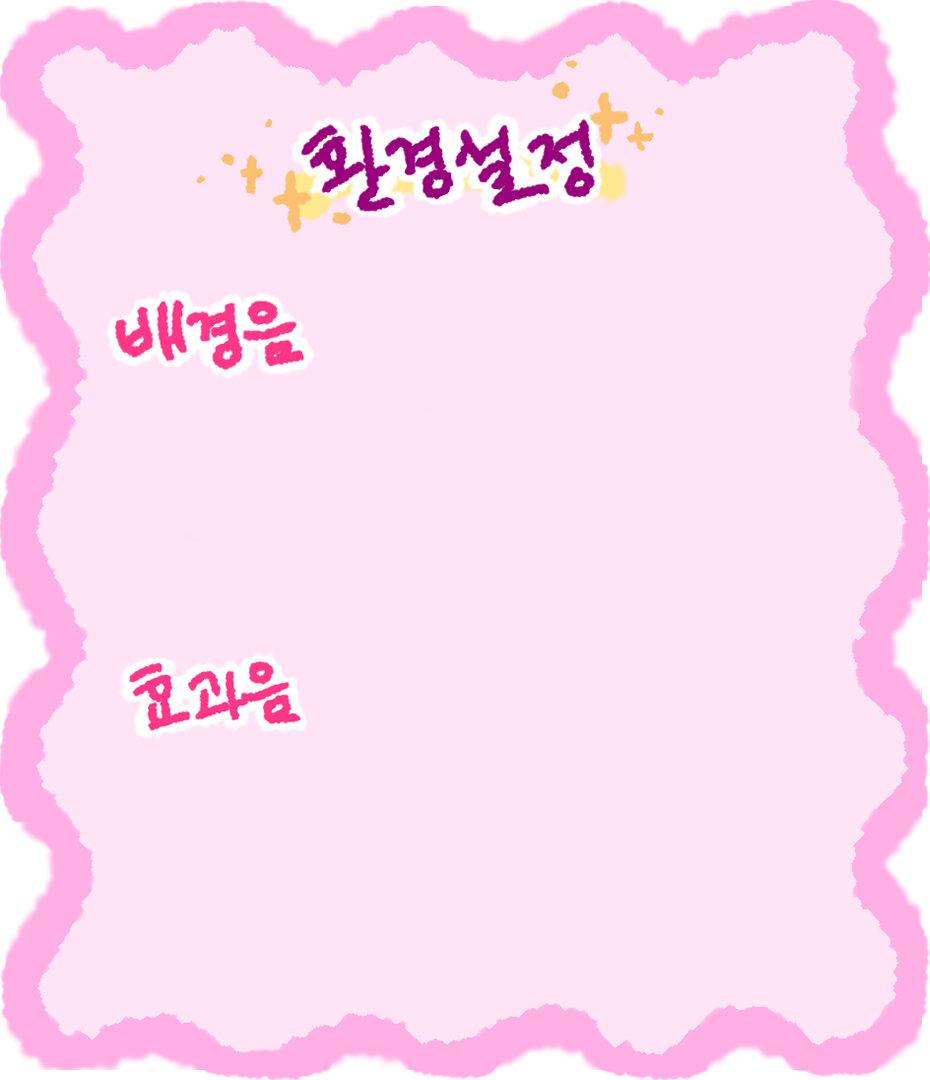 환경설정
배경음
효과음